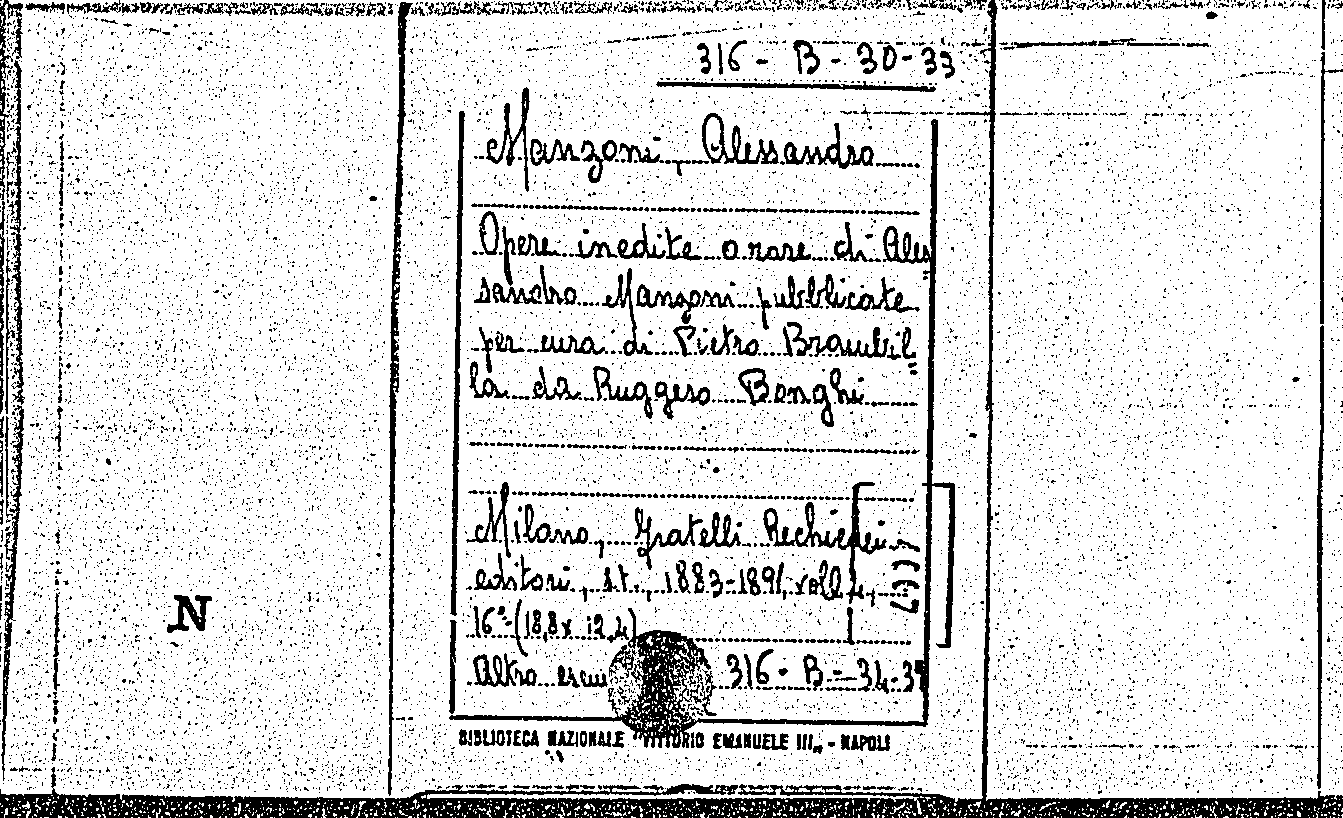 316 - B - 30-33
Manzoni, Alessandro
Opere inedite o rare di Ales
sandro Manzoni pubblicate
per cura di Pietro Brambil
la da Ruggero Bonghi
Milano, Fratelli Rechiedei
editori, s.t., 1883-1891, voll 4,
16°-(18,8x 12,4)
Altro esem 316 - B - 34-37
BIBLIOTECA NAZIONALE "VITTORIO EMANUELE III„ - NAPOLI
N